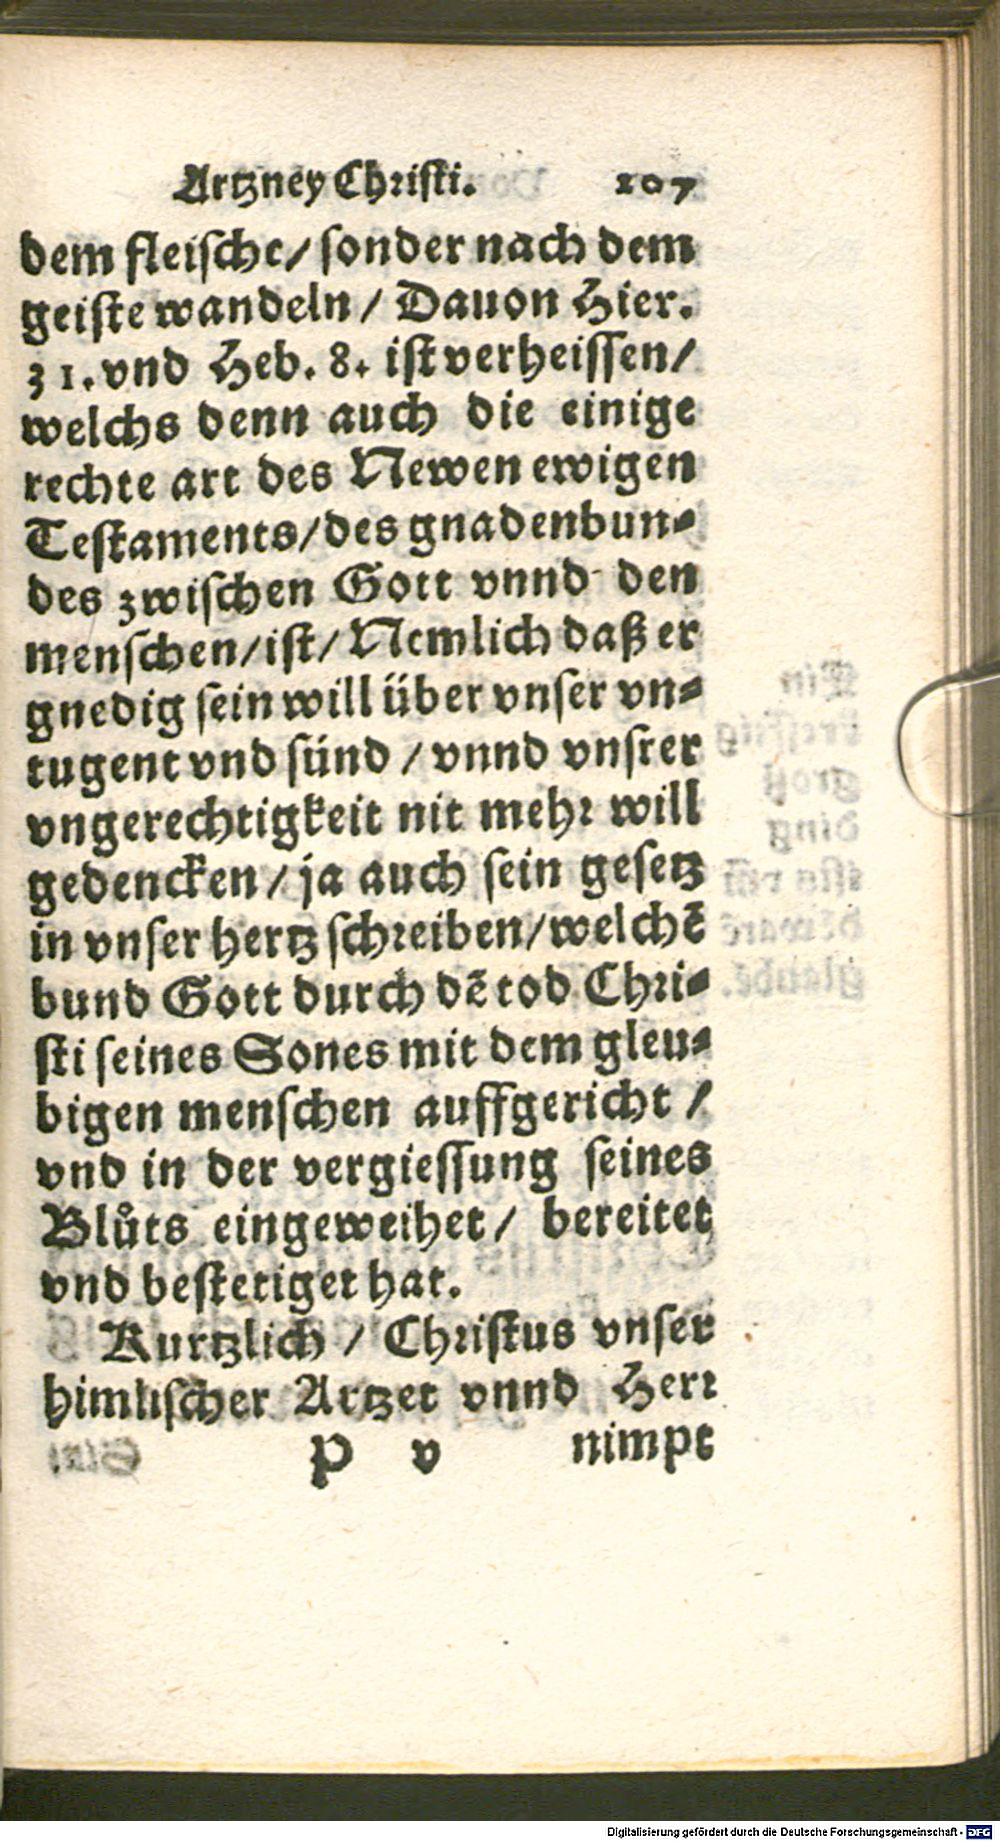 Artzney Christi. 107
dem fleische/ sonder nach dem
geiste wandeln / Dauon Hier.
31. vnd Heb. 8. ist verheissen/
welchs denn auch die einige
rechte art des Newen ewigen
Testaments/ des gnadenbun-
des zwischen Gott vnnd den
menschen/ ist/ Nemlich daß er
gnedig sein will über vnser vn-
tugent vnd sünd / vnnd vnsrer
vngerechtigkeit nit mehr will
gedencken / ja auch sein gesetz
in vnser hertz schreiben/ welchẽ
bund Gott durch dẽ tod Chri-
sti seines Sones mit dem gleu-
bigen menschen auffgericht /
vnd in der vergiessung seines
Blůts eingeweihet/ bereitet
vnd bestetiget hat.
Kurtzlich / Christus vnser
himlischer Artzet vnnd Herr
P v nimpt
Digitalisierung gefördert durch die Deutsche Forschungsgemeinschaft - DFG